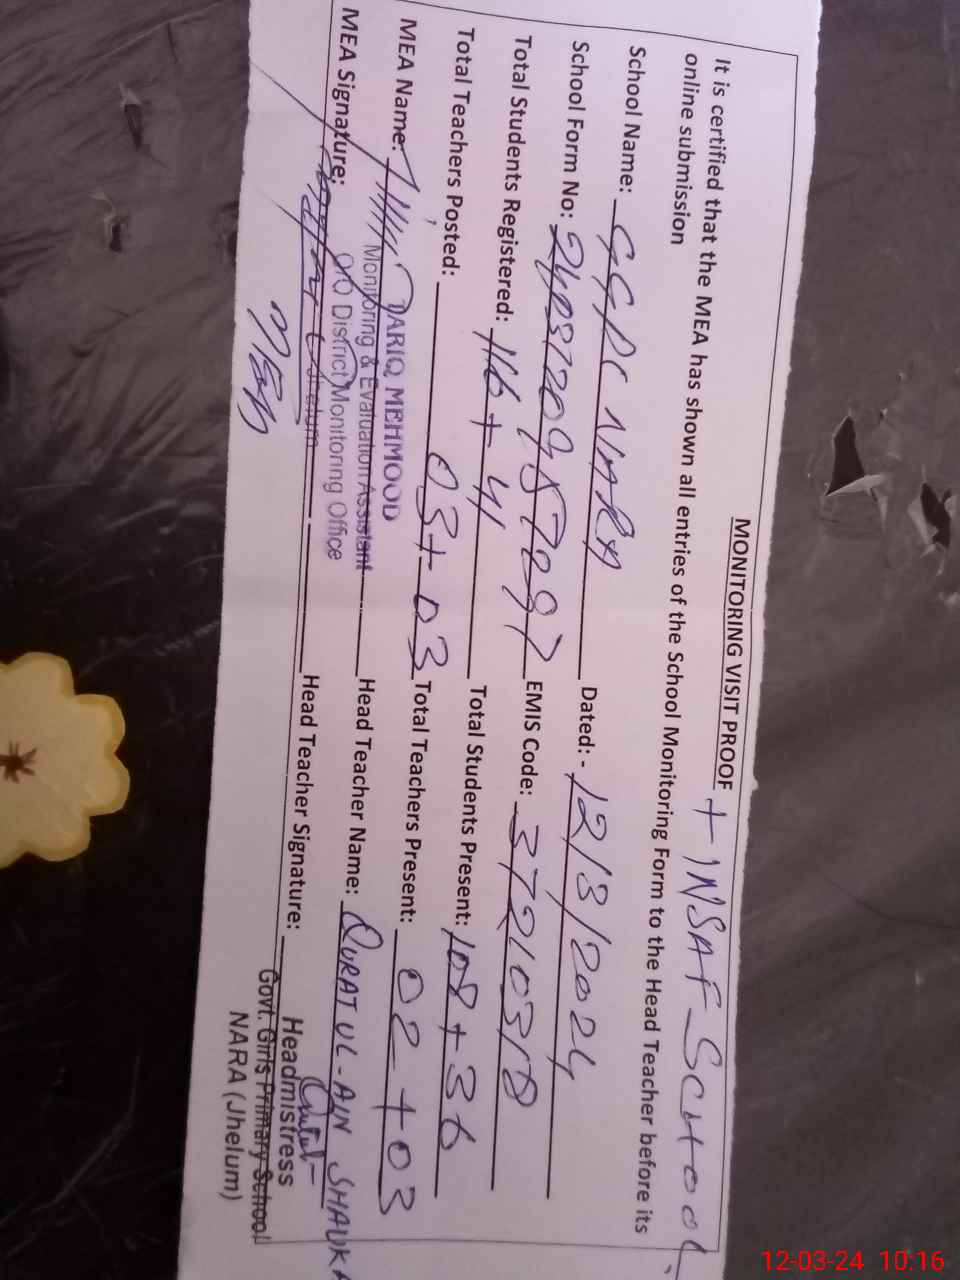 MONITORING VISIT PROOF + INSAF SCHOOL
It is certified that the MEA has shown all entries of the School Monitoring Form to the Head Teacher before its
online submission
School Name: GGPS NARA Dated: - 12/3/2024
School Form No: EMIS Code: 37210318
Total Students Registered: 116 + 41 Total Students Present: 108 + 36
Total Teachers Posted: 03 + 03 Total Teachers Present: 02 + 03
MEA Name: TARIQ MEHMOOD Head Teacher Name: QURAT UL-AIN SHAUKA
Monitoring & Evaluation Assistant
O/O District Monitoring Office
Jhelum
MEA Signature: Head Teacher Signature:
MEA
Headmistress
Govt. Girls Primary School
NARA (Jhelum)
12-03-24 10:16